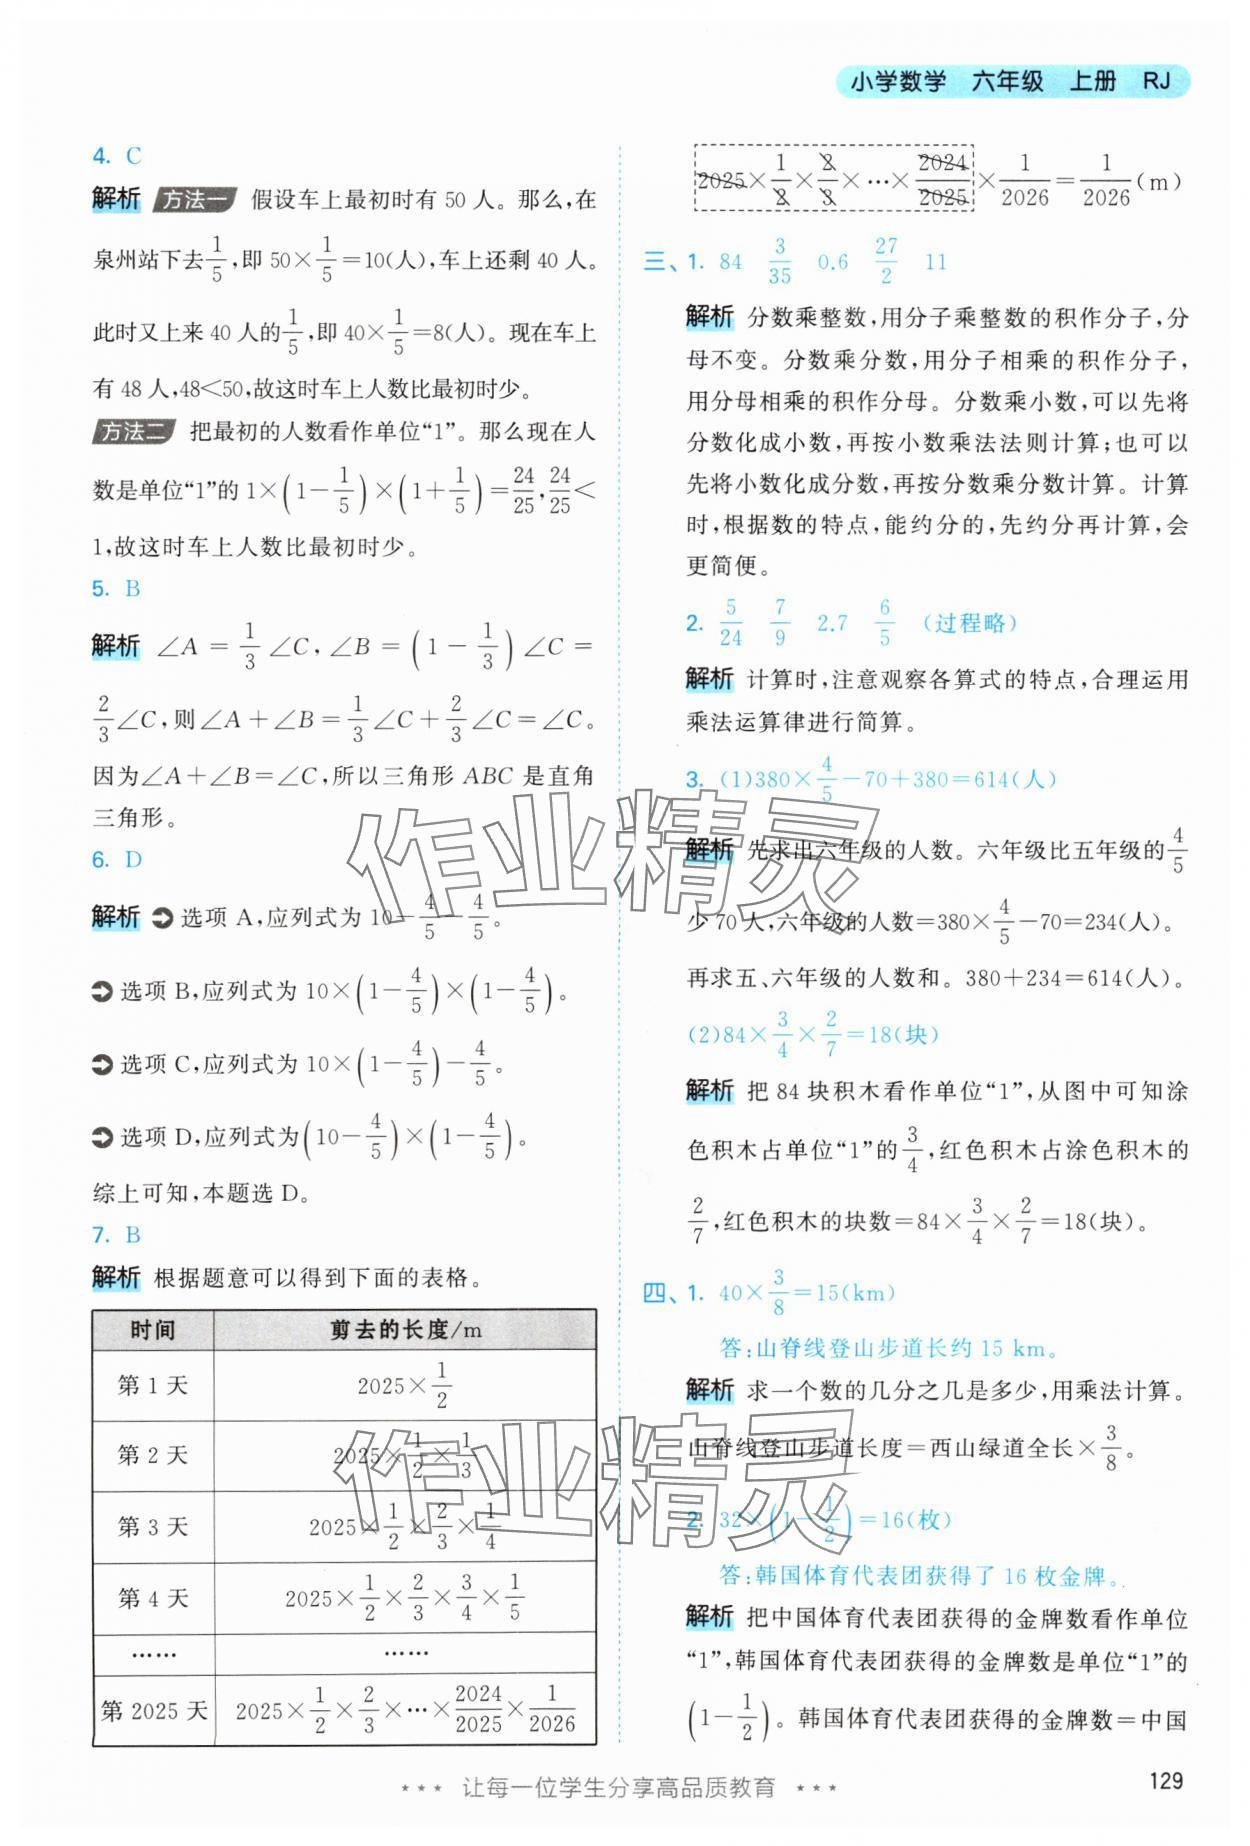 小学数学 六年级 上册 RJ
4. C
解析 方法一 假设车上最初时有 50 人。那么,在
泉州站下去1/5,即 50×1/5=10(人),车上还剩 40 人。
此时又上来 40 人的1/5,即 40×1/5=8(人)。现在车上
有 48 人,48<50,故这时车上人数比最初时少。
方法二 把最初的人数看作单位“1”。那么现在人
数是单位“1”的 1×(1-1/5)×(1+1/5)=24/25,24/25<
1,故这时车上人数比最初时少。
5. B
解析 ∠A=1/3∠C,∠B=(1-1/3)∠C=
2/3∠C,则∠A+∠B=1/3∠C+2/3∠C=∠C。
因为∠A+∠B=∠C,所以三角形 ABC 是直角
三角形。
6. D
解析 ➔ 选项 A,应列式为 10-4/5-4/5。
➔ 选项 B,应列式为 10×(1-4/5)×(1-4/5)。
➔ 选项 C,应列式为 10×(1-4/5)-4/5。
➔ 选项 D,应列式为(10-4/5)×(1-4/5)。
综上可知,本题选 D。
7. B
解析 根据题意可以得到下面的表格。
时间 剪去的长度/m
第 1 天 2025×1/2
第 2 天 2025×1/2×1/3
第 3 天 2025×1/2×2/3×1/4
第 4 天 2025×1/2×2/3×3/4×1/5
…… ……
第 2025 天 2025×1/2×2/3×…×2024/2025×1/2026
2025×1/2×2/3×…×2024/2025×1/2026=1/2026(m)
三、1. 84 3/35 0.6 27/2 11
解析 分数乘整数,用分子乘整数的积作分子,分
母不变。分数乘分数,用分子相乘的积作分子,
用分母相乘的积作分母。分数乘小数,可以先将
分数化成小数,再按小数乘法法则计算;也可以
先将小数化成分数,再按分数乘分数计算。计算
时,根据数的特点,能约分的,先约分再计算,会
更简便。
2. 5/24 7/9 2.7 6/5 (过程略)
解析 计算时,注意观察各算式的特点,合理运用
乘法运算律进行简算。
3. (1)380×4/5-70+380=614(人)
解析 先求出六年级的人数。六年级比五年级的4/5
少 70 人,六年级的人数=380×4/5-70=234(人)。
再求五、六年级的人数和。380+234=614(人)。
(2)84×3/4×2/7=18(块)
解析 把 84 块积木看作单位“1”,从图中可知涂
色积木占单位“1”的3/4,红色积木占涂色积木的
2/7,红色积木的块数=84×3/4×2/7=18(块)。
四、1. 40×3/8=15(km)
答:山脊线登山步道长约 15 km。
解析 求一个数的几分之几是多少,用乘法计算。
山脊线登山步道长度=西山绿道全长×3/8。
2. 32×(1-1/2)=16(枚)
答:韩国体育代表团获得了 16 枚金牌。
解析 把中国体育代表团获得的金牌数看作单位
“1”,韩国体育代表团获得的金牌数是单位“1”的
(1-1/2)。韩国体育代表团获得的金牌数=中国
作业精灵
作业精灵
*** 让每一位学生分享高品质教育 ***
129